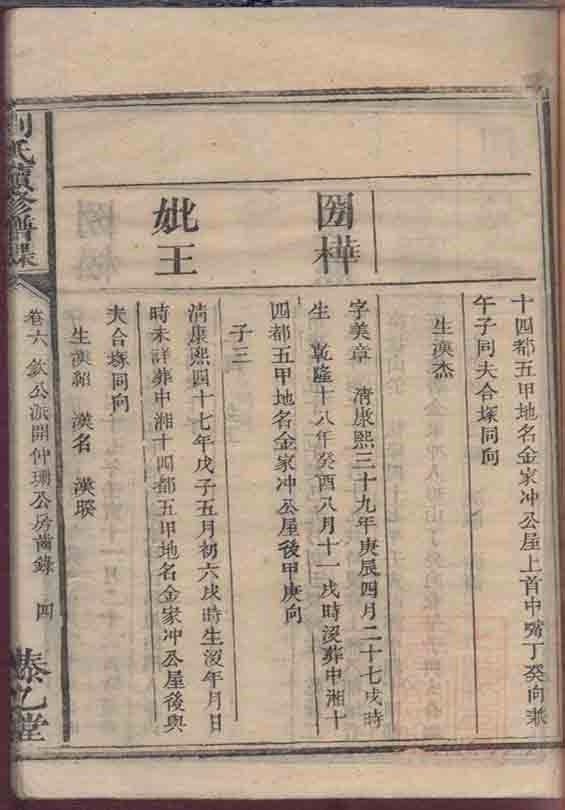 十四都五甲地名金家冲公屋上首中嘴丁癸向兼
午子同夫合塚同向
生漢杰
国樺
字美章 清康熙三十九年庚辰四月二十七戌時
生 乾隆十八年癸酉八月十一戌時沒葬中湘十
四都五甲地名金家冲公屋後甲庚向
子三
妣王
清康熙四十七年戊子五月初六戌時生沒年月日
時未詳葬中湘十四都五甲地名金家冲公屋後與
夫合塚同向
生漢紹 漢名 漢
劉氏續修譜牒
卷六 欽公派開仲珊公房齒錄 四
藜乙堂